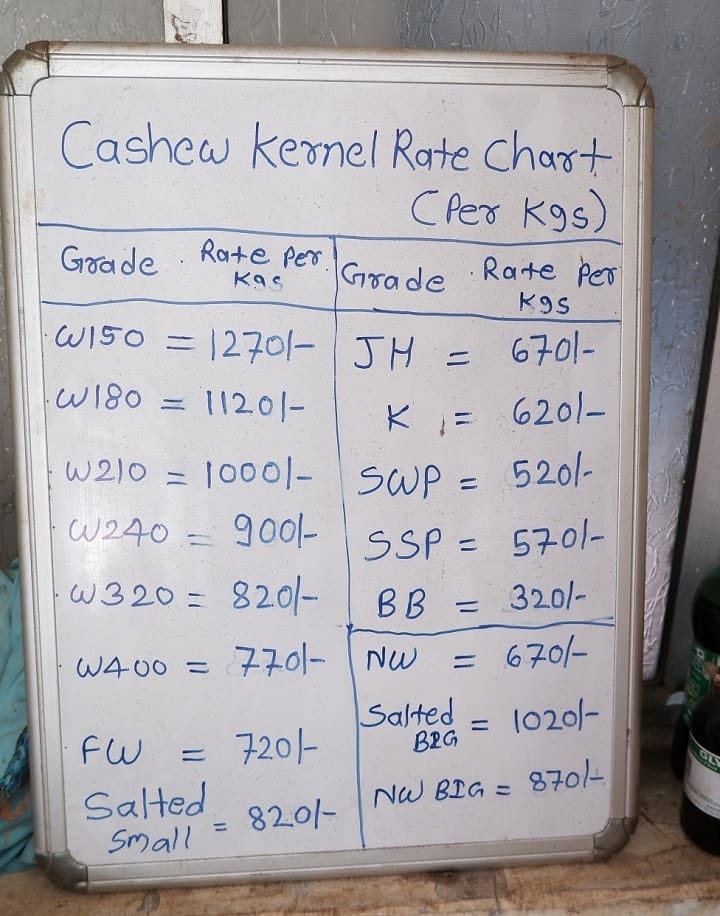 Cashew Kernel Rate Chart
(Per Kgs)
Grade Rate Per
Kgs
W150 = 1270/-
W180 = 1120/-
W210 = 1000/-
W240 = 900/-
W320 = 820/-
W400 = 770/-
FW = 720/-
Salted
Small = 820/-
Grade Rate Per
Kgs
JH = 670/-
K = 620/-
SWP = 520/-
SSP = 570/-
BB = 320/-
NW = 670/-
Salted
BIG = 1020/-
NW BIG = 870/-